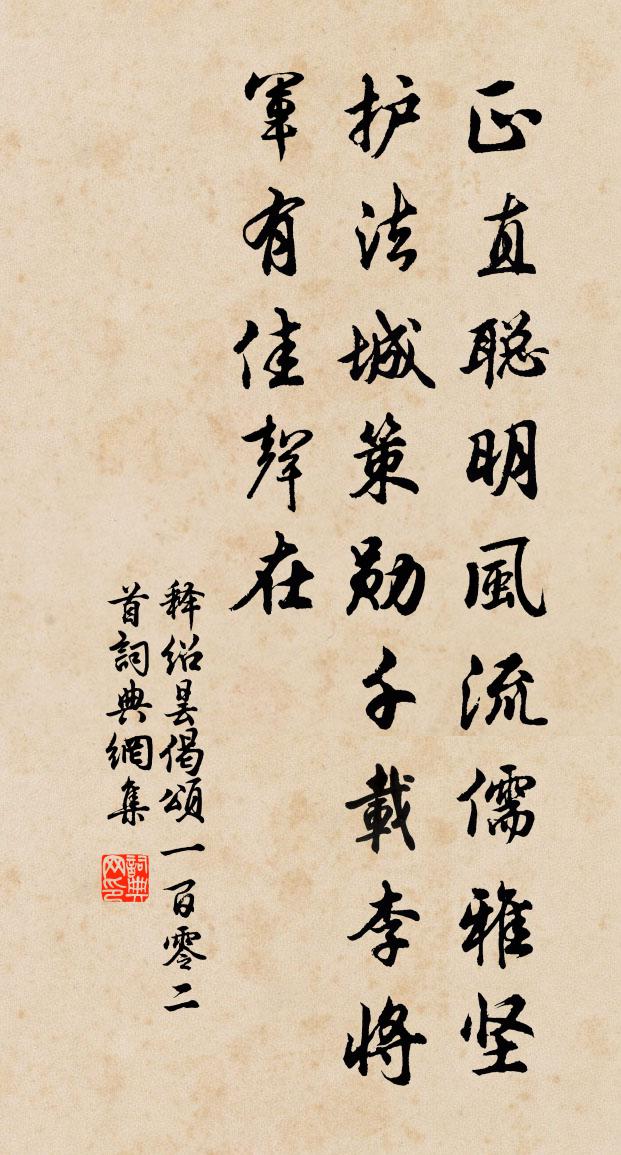 正直聪明風流儒雅坚
护法城策勋千載李將
軍有佳聲在
释绍曇偈頌一百零二
首詞典網集
詞典网印